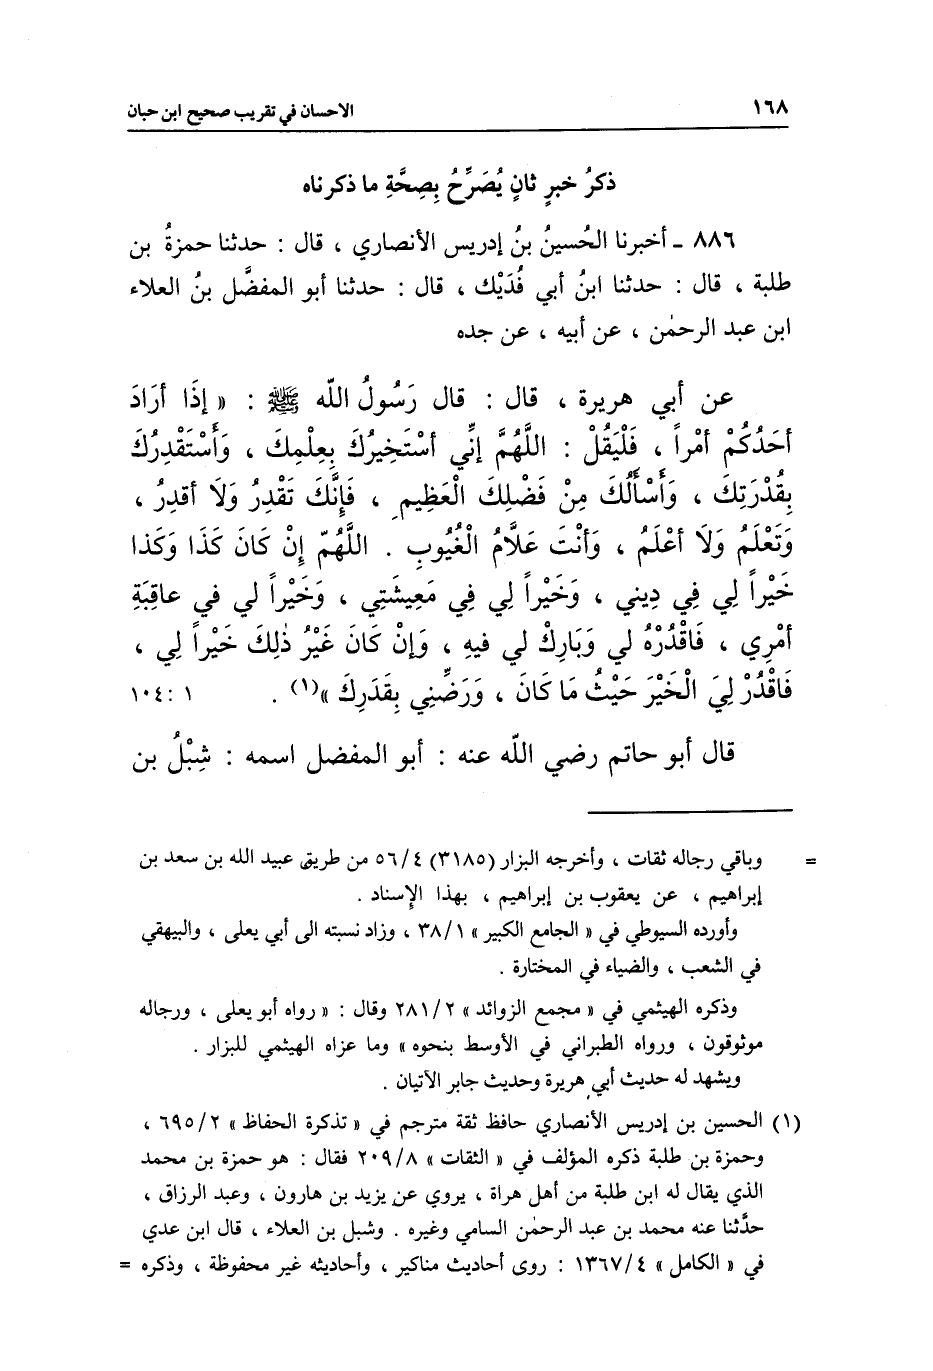 ١٦٨ الاحسان في تقريب صحيح ابن حبان
ذكرُ خبرٍ ثانٍ يُصَرِّحُ بِصِحَّةِ ما ذكرناه
٨٨٦ ـ أخبرنا الحُسينُ بنُ إدريس الأنصاري ، قال : حدثنا حمزةُ بن
طلبة ، قال : حدثنا ابنُ أبي فُدَيْك ، قال : حدثنا أبو المفضَّل بنُ العلاء
ابن عبد الرحمٰن ، عن أبيه ، عن جده
عن أبي هريرة ، قال : قال رَسُولُ اللّه ﷺ : « إذَا أرَادَ
أحَدُكُمْ أمْراً ، فَلْيَقُلْ : اللَّهُمَّ إنِّي أسْتَخِيرُكَ بِعِلْمِكَ ، وَأسْتَقْدِرُكَ
بِقُدْرَتِكَ ، وَأسْأَلُكَ مِنْ فَضْلِكَ الْعَظِيمِ ، فَإنَّكَ تَقْدِرُ وَلَا أقدِرُ ،
وَتَعْلَمُ وَلَا أعْلَمُ ، وَأنْتَ عَلَّامُ الْغُيُوبِ . اللَّهُمّ إنْ كَانَ كَذَا وَكَذا
خَيْراً لِي فِي دِيني ، وَخَيْراً لِي فِي مَعِيشَتِي ، وَخَيْراً لي في عاقِبَةِ
أمْرِي ، فَاقْدُرْهُ لي وَبَارِكْ لي فيهِ ، وَإنْ كَانَ غَيْرُ ذٰلِكَ خَيْراً لِي ،
فَاقْدُرْ لِيَ الْخَيْرَ حَيْثُ مَا كَانَ ، وَرَضِّنِي بِقَدَرِكَ »(١) . ١ :١٠٤
قال أبو حاتم رضي اللّه عنه : أبو المفضل اسمه : شِبْلُ بن
= وباقي رجاله ثقات ، وأخرجه البزار (٣١٨٥) ٥٦/٤ من طريق عبيد الله بن سعد بن
إبراهيم ، عن يعقوب بن إبراهيم ، بهذا الإسناد .
وأورده السيوطي في « الجامع الكبير » ٣٨/١ ، وزاد نسبته الى أبي يعلى ، والبيهقي
في الشعب ، والضياء في المختارة .
وذكره الهيثمي في « مجمع الزوائد » ٢٨١/٢ وقال : « رواه أبو يعلى ، ورجاله
موثوقون ، ورواه الطبراني في الأوسط بنحوه » وما عزاه الهيثمي للبزار .
ويشهد له حديث أبي هريرة وحديث جابر الآتيان .
(١) الحسين بن إدريس الأنصاري حافظ ثقة مترجم في « تذكرة الحفاظ » ٦٩٥/٢ ،
وحمزة بن طلبة ذكره المؤلف في « الثقات » ٢٠٩/٨ فقال : هو حمزة بن محمد
الذي يقال له ابن طلبة من أهل هراة ، يروي عن يزيد بن هارون ، وعبد الرزاق ،
حدَّثنا عنه محمد بن عبد الرحمٰن السامي وغيره . وشبل بن العلاء ، قال ابن عدي
في « الكامل » ١٣٦٧/٤ : روى أحاديث مناكير ، وأحاديثه غير محفوظة ، وذكره =